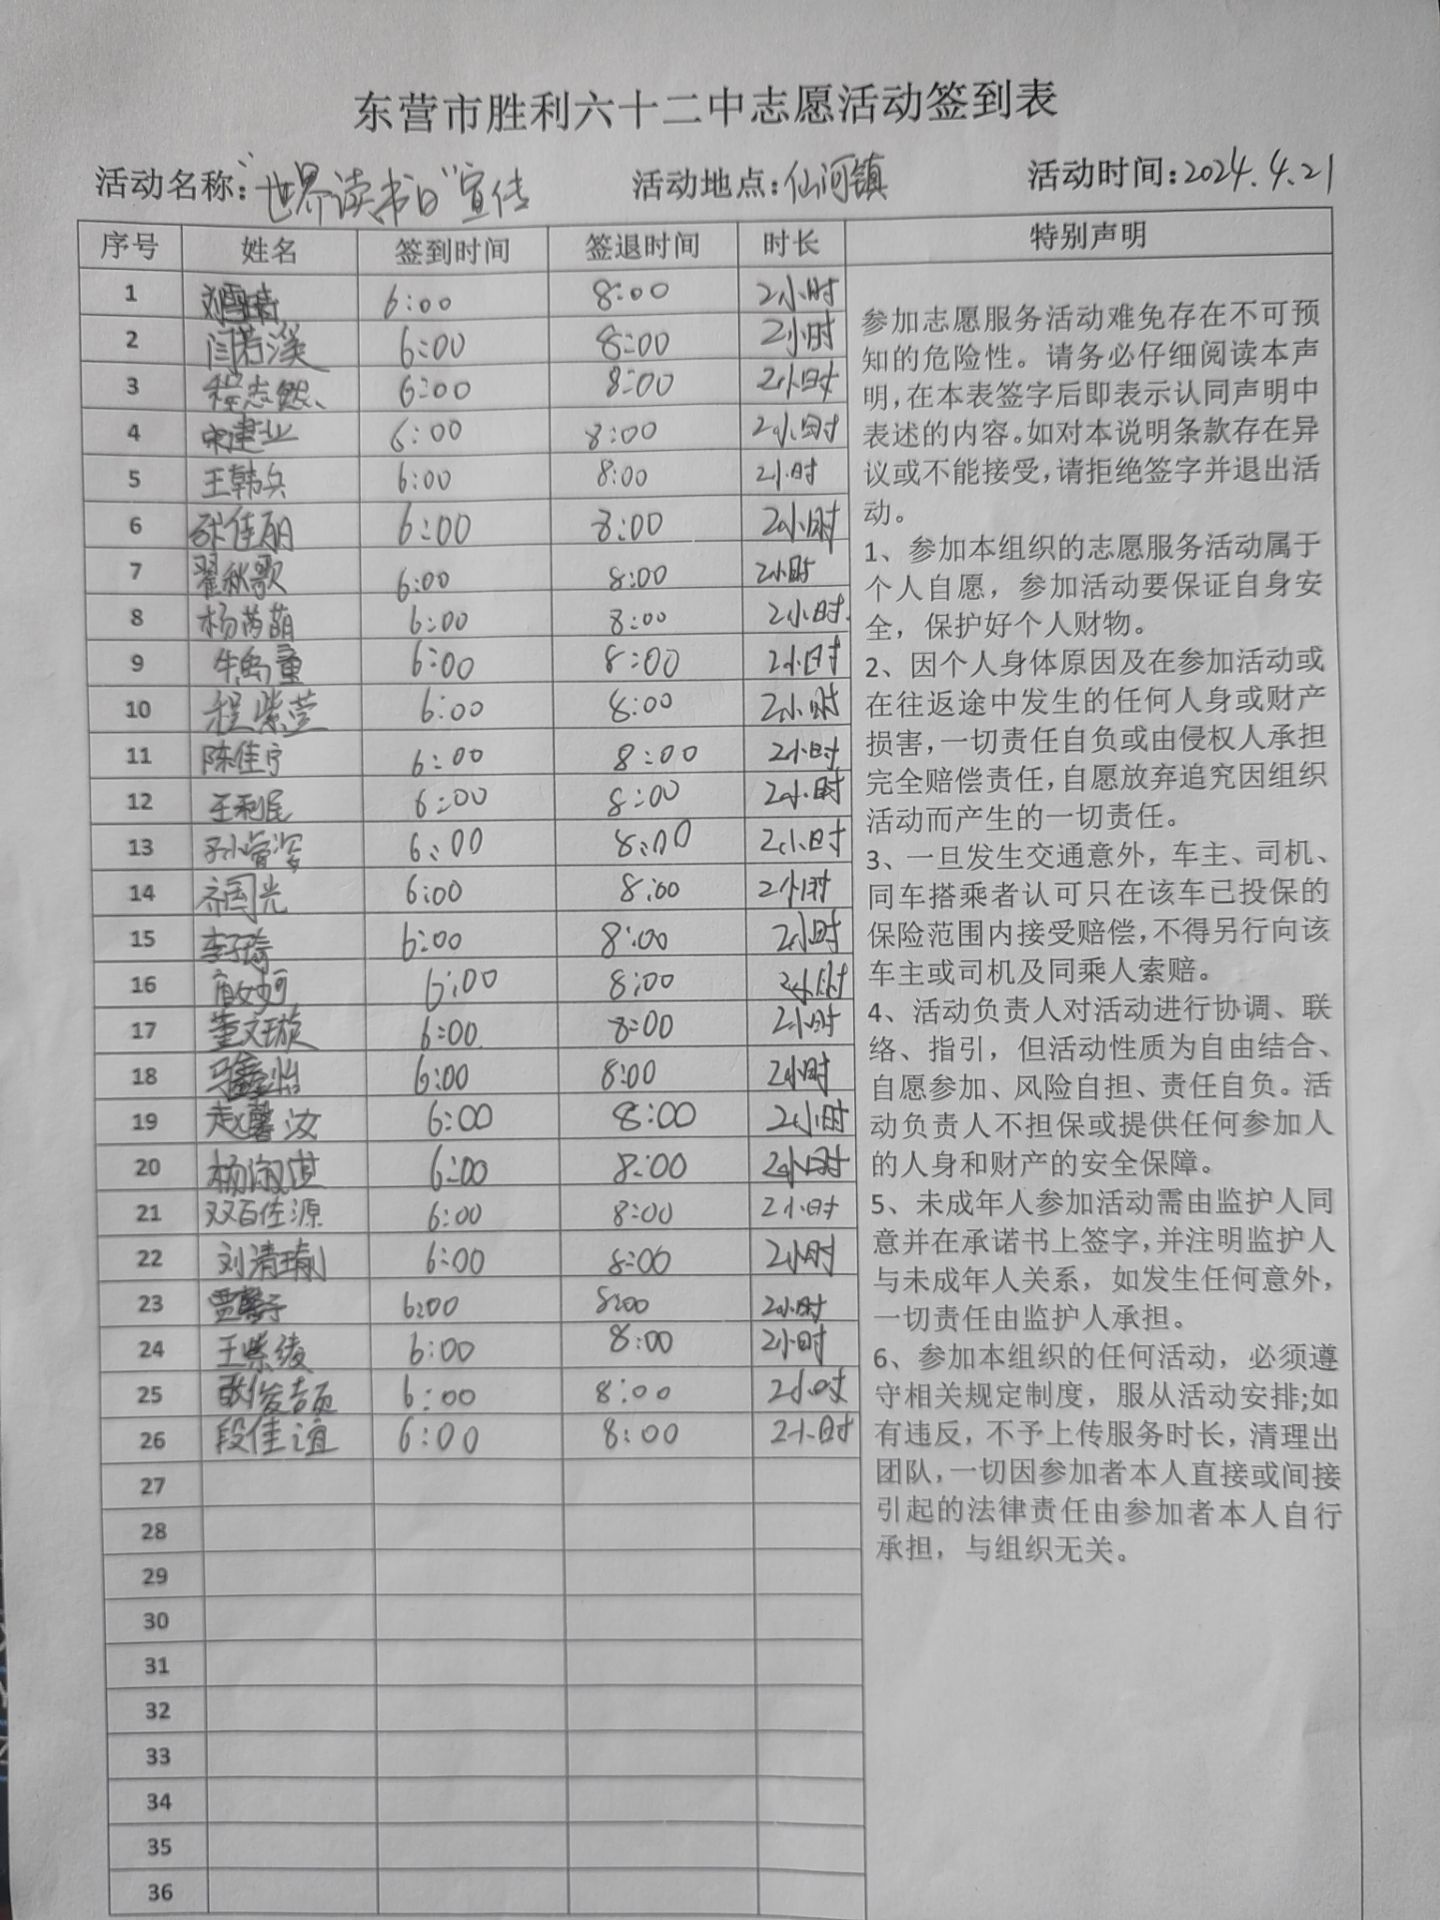 东营市胜利六十二中志愿活动签到表
活动名称:“世界读书日”宣传 活动地点:仙河镇 活动时间:2024.4.21
序号 姓名 签到时间 签退时间 时长 特别声明
1 6:00 8:00 2小时
2 闫芳溪 6:00 8:00 2小时
3 程志然 6:00 8:00 2小时
4 建业 6:00 8:00 2小时
5 王韩兵 6:00 8:00 2小时
6 张佳丽 6:00 8:00 2小时
7 翟秋歌 6:00 8:00 2小时
8 杨芮萌 6:00 8:00 2小时
9 牛禹童 6:00 8:00 2小时
10 程紫萱 6:00 8:00 2小时
11 陈佳宁 6:00 8:00 2小时
12 王利民 6:00 8:00 2小时
13 6:00 8:00 2小时
14 齐国光 6:00 8:00 2小时
15 李子琦 6:00 8:00 2小时
16 6:00 8:00 2小时
17 董文璇 6:00 8:00 2小时
18 马怡 6:00 8:00 2小时
19 赵馨汝 6:00 8:00 2小时
20 杨淑淇 6:00 8:00 2小时
21 双百佐源 6:00 8:00 2小时
22 刘清瑜 6:00 8:00 2小时
23 贾子 6:00 8:00 2小时
24 王紫绫 6:00 8:00 2小时
25 6:00 8:00 2小时
26 段佳谊 6:00 8:00 2小时
27
28
29
30
31
32
33
34
35
36
参加志愿服务活动难免存在不可预
知的危险性。请务必仔细阅读本声
明,在本表签字后即表示认同声明中
表述的内容。如对本说明条款存在异
议或不能接受,请拒绝签字并退出活
动。
1、参加本组织的志愿服务活动属于
个人自愿，参加活动要保证自身安
全，保护好个人财物。
2、因个人身体原因及在参加活动或
在往返途中发生的任何人身或财产
损害,一切责任自负或由侵权人承担
完全赔偿责任,自愿放弃追究因组织
活动而产生的一切责任。
3、一旦发生交通意外，车主、司机、
同车搭乘者认可只在该车已投保的
保险范围内接受赔偿,不得另行向该
车主或司机及同乘人索赔。
4、活动负责人对活动进行协调、联
络、指引，但活动性质为自由结合、
自愿参加、风险自担、责任自负。活
动负责人不担保或提供任何参加人
的人身和财产的安全保障。
5、未成年人参加活动需由监护人同
意并在承诺书上签字,并注明监护人
与未成年人关系，如发生任何意外，
一切责任由监护人承担。
6、参加本组织的任何活动，必须遵
守相关规定制度，服从活动安排;如
有违反，不予上传服务时长，清理出
团队,一切因参加者本人直接或间接
引起的法律责任由参加者本人自行
承担，与组织无关。